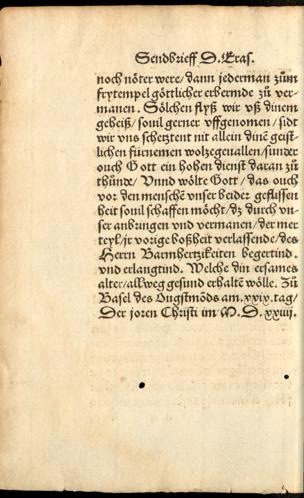 Sendbrieff D. Eras.
noch nöter were/ dann jederman zům
frytempel göttlicher erbermde zů ver-
manen. Sölchen flyß wir vß dinem
geheiß/ souil gerner vffgenomen/ sidt
wir vns schetztent nit allein dinē geist-
lichen fürnemen wolzegeuallen/ sunder
ouch Gott ein hohen dienst daran zů
thůnde/ Vnnd wölte Gott/ das ouch
vor den menschē vnser beider geflissen
heit souil schaffen möcht/ dz durch vn-
ser anbringen vnd vermanen/ der mer
teyl/ jr vorige boßheit verlassende/ des
Herrn Barmhertzikeiten begertind.
vnd erlangtind. Welche din ersames
alter/ allweg gesund erhaltē wölle. Zů
Basel des Ougstmōds am. xxix. tag/
Der joren Christi im M. D. xxiiij.